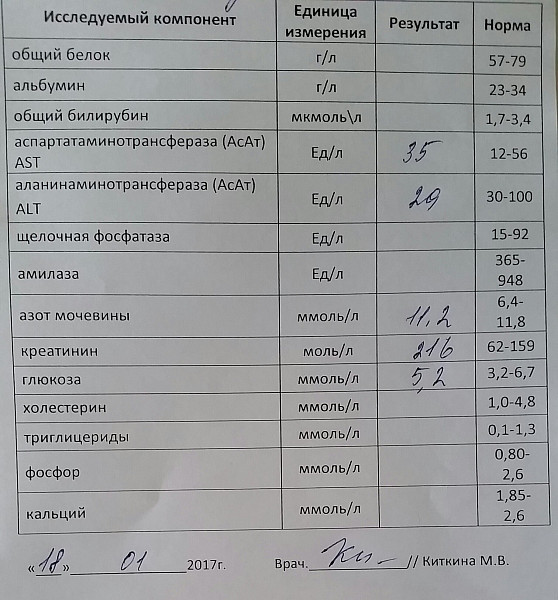 Исследуемый компонент Единица измерения Результат Норма
общий белок г/л 57-79
альбумин г/л 23-34
общий билирубин мкмоль\л 1,7-3,4
аспартатаминотрансфераза (АсАт) AST Ед/л 35 12-56
аланинаминотрансфераза (АсАт) ALT Ед/л 29 30-100
щелочная фосфатаза Ед/л 15-92
амилаза Ед/л 365-948
азот мочевины ммоль/л 11,2 6,4-11,8
креатинин моль/л 216 62-159
глюкоза ммоль/л 5,2 3,2-6,7
холестерин ммоль/л 1,0-4,8
триглицериды ммоль/л 0,1-1,3
фосфор ммоль/л 0,80-2,6
кальций ммоль/л 1,85-2,6
«18» 01 2017г. Врач. // Киткина М.В.